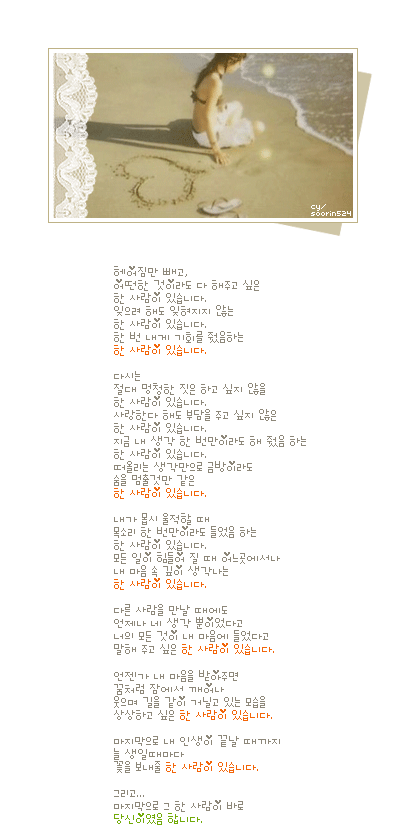 cy/
soorin524
헤어짐만 빼고,
어떠한 것이라도 다 해주고 싶은
한 사람이 있습니다.
잊으려 해도 잊혀지지 않는
한 사람이 있습니다.
한 번 내게 기회를 줬음하는
한 사람이 있습니다.
다시는
절대 멍청한 짓은 하고 싶지 않을
한 사람이 있습니다.
사랑한다 해도 부담을 주고 싶지 않은
한 사람이 있습니다.
지금 내 생각 한 번만이라도 해 줬음 하는
한 사람이 있습니다.
떠올리는 생각만으로 금방이라도
숨을 멈출것만 같은
한 사람이 있습니다.
내가 몹시 울적할 때
목소리 한 번만이라도 들었음 하는
한 사람이 있습니다.
모든 일이 힘들어 질 때 어느곳에서나
내 마음 속 깊이 생각나는
한 사람이 있습니다.
다른 사람을 만날 때에도
언제나 네 생각 뿐이었다고
너의 모든 것이 내 마음에 들었다고
말해 주고 싶은 한 사람이 있습니다.
언젠가 내 마음을 받아주면
꿈처럼 잠에서 깨어나
웃으며 길을 같이 거닐고 있는 모습을
상상하고 싶은 한 사람이 있습니다.
마지막으로 내 인생이 끝날 때까지
늘 생일때마다
꽃을 보내줄 한 사람이 있습니다.
그리고...
마지막으로 그 한 사람이 바로
당신이였음 합니다.